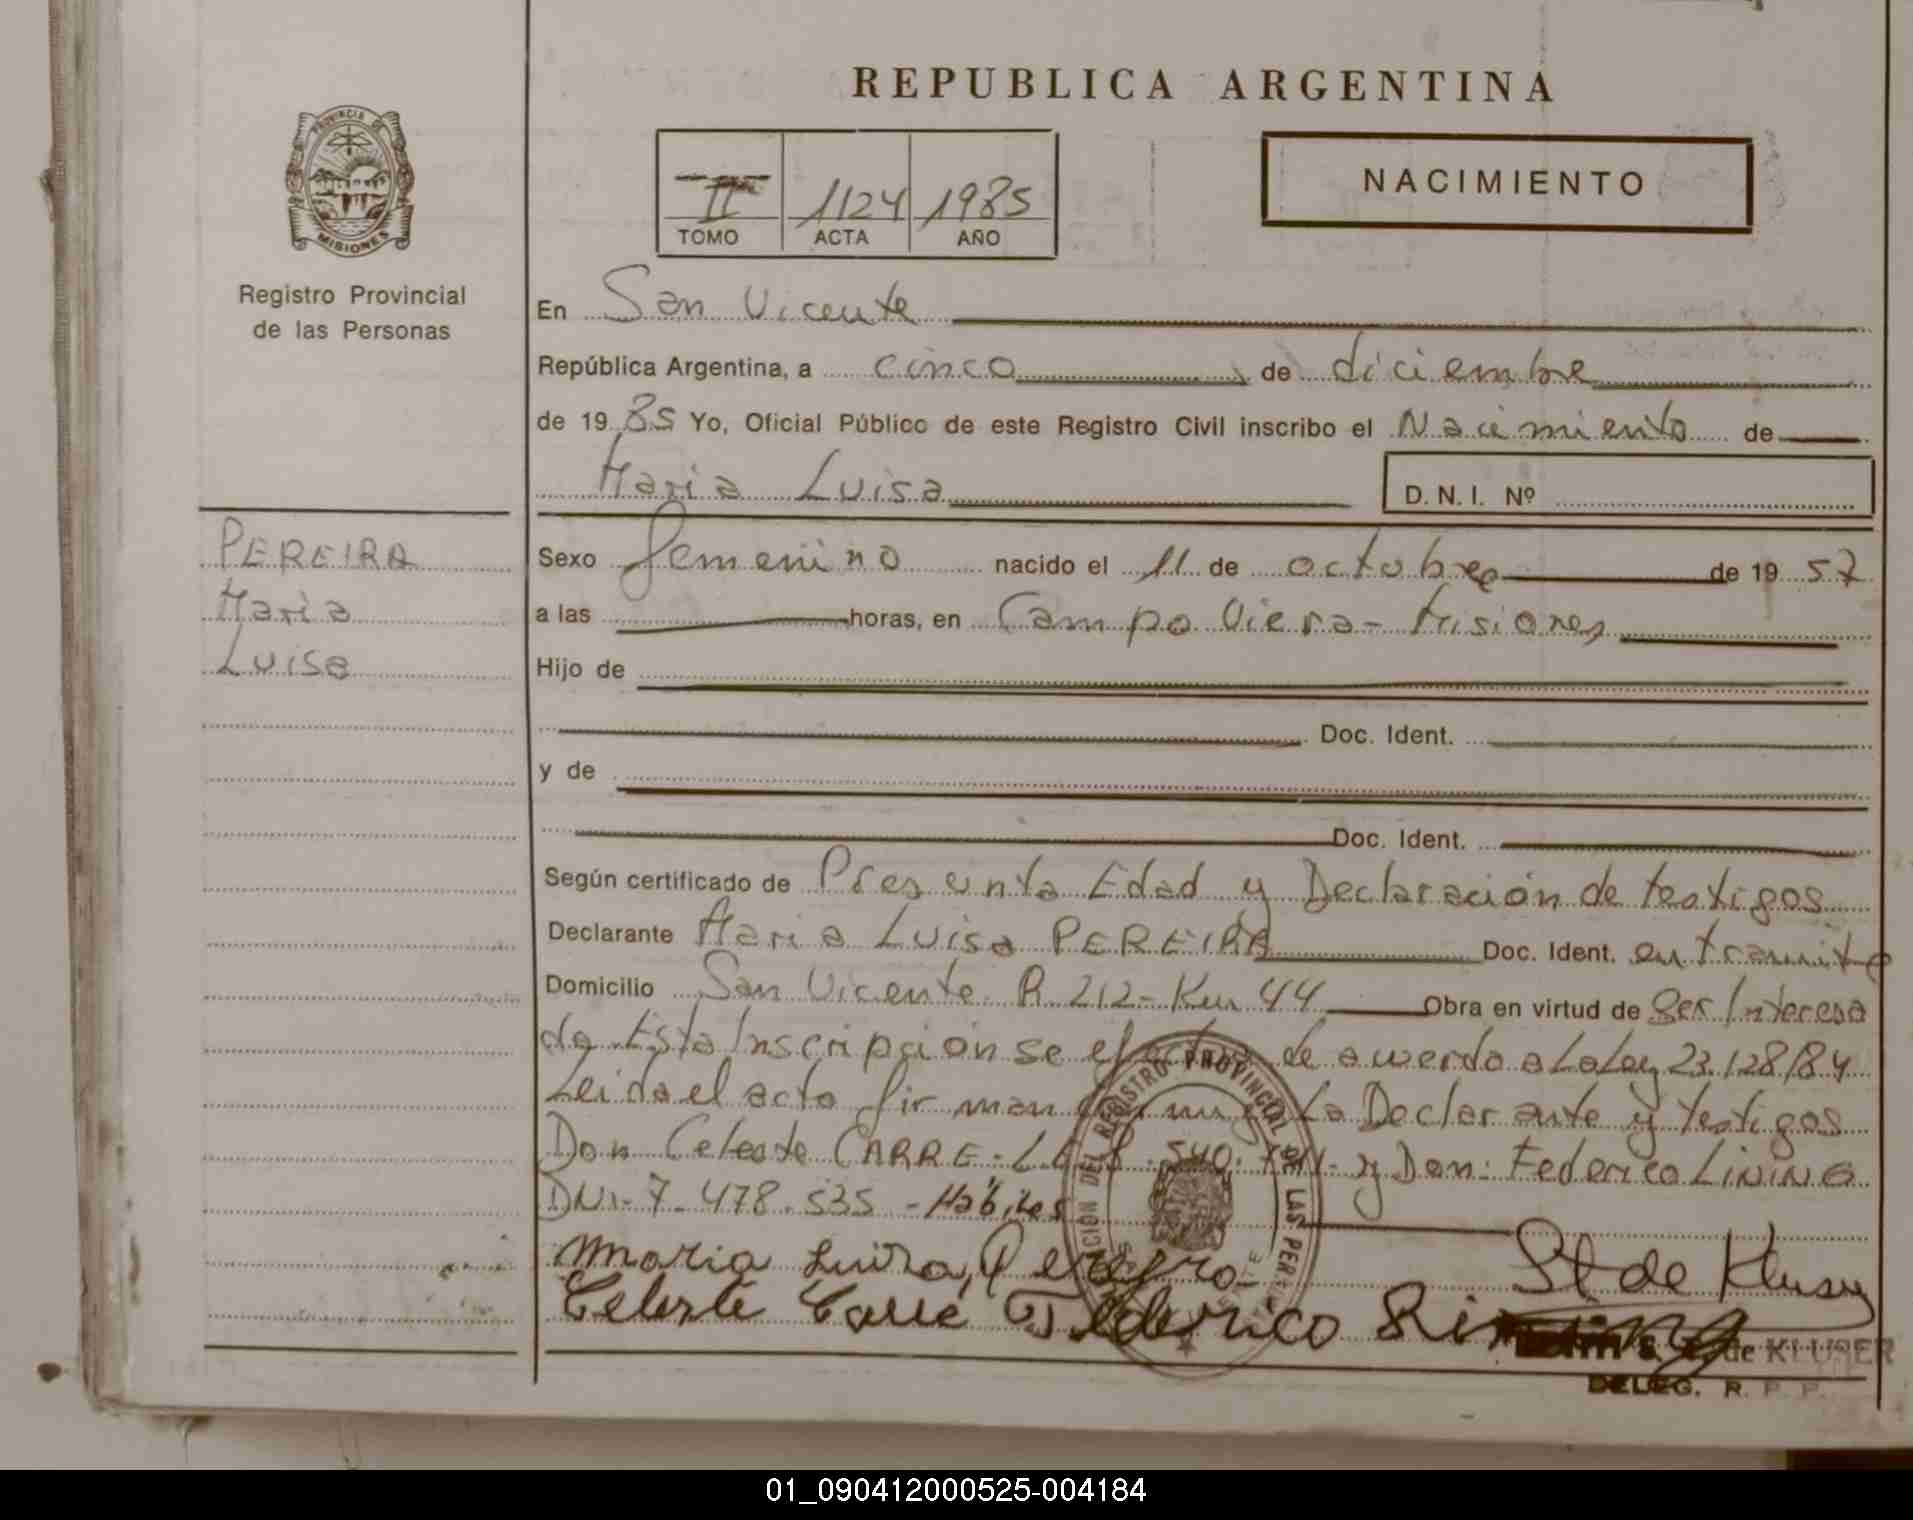 REPUBLICA ARGENTINA
PROVINCIA DE
MISIONES
Registro Provincial
de las Personas
II 1124 1985
TOMO ACTA AÑO
NACIMIENTO
En San Vicente
República Argentina, a cinco de diciembre
de 1985 Yo, Oficial Público de este Registro Civil inscribo el Nacimiento de
Maria Luisa
D. N. I. Nº
PEREIRA
Maria
Luisa
Sexo femenino nacido el 11 de octubre de 1957
a las horas, en Campo Viera - Misiones
Hijo de
Doc. Ident.
y de
Doc. Ident.
Según certificado de Presunta Edad y Declaración de testigos
Declarante Maria Luisa PEREIRA Doc. Ident. en tramite
Domicilio San Vicente R 212 - Km 44 Obra en virtud de Ser Interesa
da Esta Inscripción se efectua de acuerdo a La Ley 23.128/84
Leida el acta firman La Declarante y testigos
Don Celeste CARRE - 540. y Don: Federico LINING
DNI - 7-478.535 - Hábiles
Maria Luisa Pereyra
St de Kluser
Celeste Carre Federico Lining
de KLUSER
DELEG. R. P. P.
DEL REGISTRO PROVINCIAL DE LAS PER
01_090412000525-004184